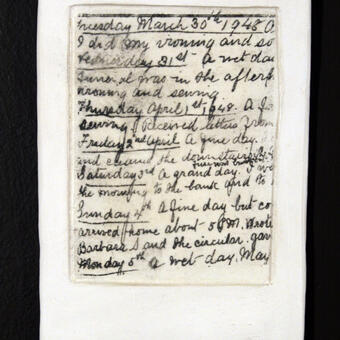 Tuesday March 30th 1948 A
I did my ironing and so
Wednesday 31st - A wet day
Funeral was in the aftern
ironing and sewing
Thursday April 1st, 1948. A fi
sewing. Received letters from
Friday 2nd April A fine day.
and cleaned the downstairs
Saturday 3rd A grand day. I we
the morning to the bank and to
Sunday 4th A fine day but co
arrived home about 5 P.M. Wrote
Barbara S and the circular. gav
Monday 5th A wet day. May